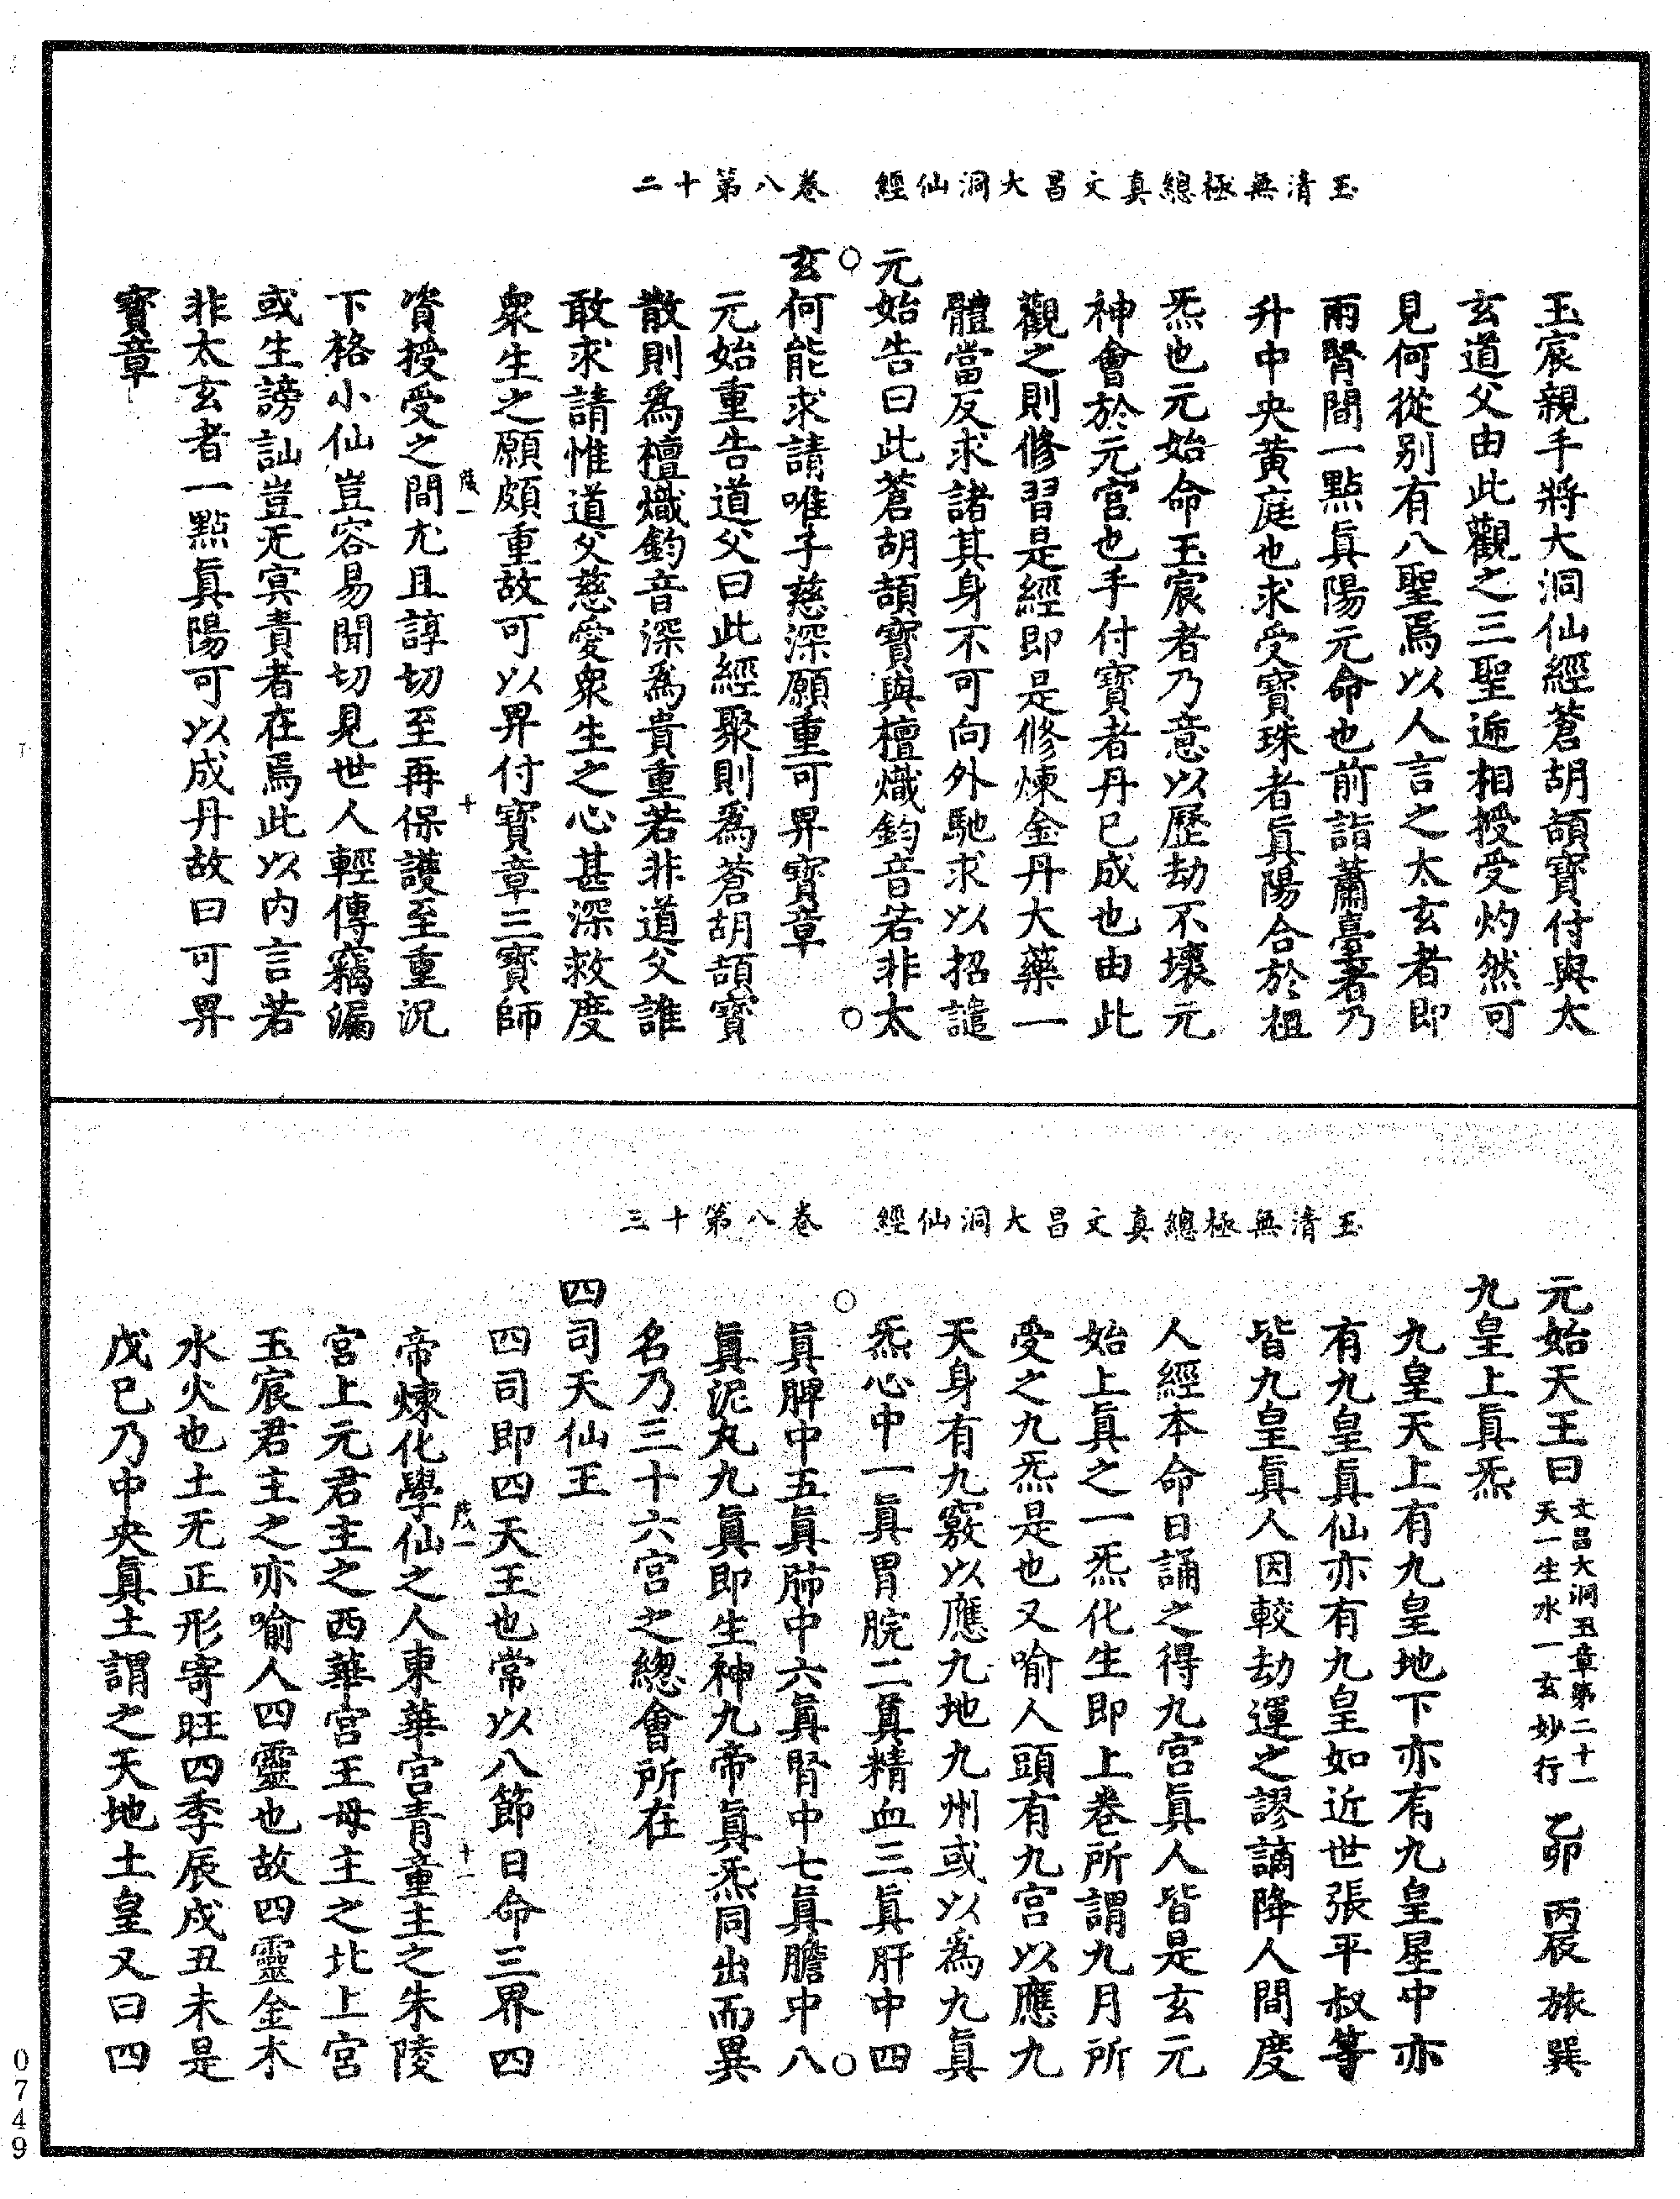 玉清無極總真文昌大洞仙經　卷八第十二
玉宸親手將大洞仙經蒼胡頡寶付與太
玄道父由此觀之三聖遞相授受灼然可
見何從别有八聖焉以人言之太玄者即
兩腎間一點眞陽元命也前詣蕭臺者乃
升中央黃庭也求受寶珠者眞陽合於祖
炁也元始命玉宸者乃意以歷劫不壞元
神會於元宮也手付寶者丹已成也由此
觀之則修習是經即是修煉金丹大藥一
體當反求諸其身不可向外馳求以招譴
元始告曰此蒼胡頡寶與檀熾鈞音若非太
玄何能求請唯子慈深願重可畀寶章
元始重告道父曰此經聚則爲蒼胡頡寶
散則爲檀熾鈞音深爲貴重若非道父誰
敢求請惟道父慈愛衆生之心甚深救度
衆生之願頗重故可以畀付寶章三寶師
陵一　十
資授受之間尤且諄切至再保護至重況
下格小仙豈容易聞切見世人輕傳竊漏
或生謗訕豈无㝠責者在焉此以内言若
非太玄者一點眞陽可以成丹故曰可畀
寶章
玉清無極總真文昌大洞仙經　卷八第十三
元始天王曰 文昌大洞丑章第二十一 天一生水一玄妙行 乙卯 丙辰 旅 巽
九皇上眞炁
九皇天上有九皇地下亦有九皇星中亦
有九皇眞仙亦有九皇如近世張平叔等
皆九皇眞人因較劫運之謬謫降人間度
人經本命日誦之得九宮眞人皆是玄元
始上眞之一炁化生即上卷所謂九月所
受之九炁是也又喻人頭有九宮以應九
天身有九竅以應九地九州或以爲九眞
炁心中一眞胃脘二眞精血三眞肝中四
眞脾中五眞肺中六眞腎中七眞膽中八
眞泥丸九眞即生神九帝眞炁同出而異
名乃三十六宮之總會所在
四司天仙王
四司即四天王也常以八節日命三界四
陵一　十一
帝煉化學仙之人東華宮青童主之朱陵
宮上元君主之西華宮王母主之北上宮
玉宸君主之亦喻人四靈也故四靈金木
水火也土无正形寄旺四季辰戌丑未是
戊巳乃中央眞土謂之天地土皇又曰四
0749